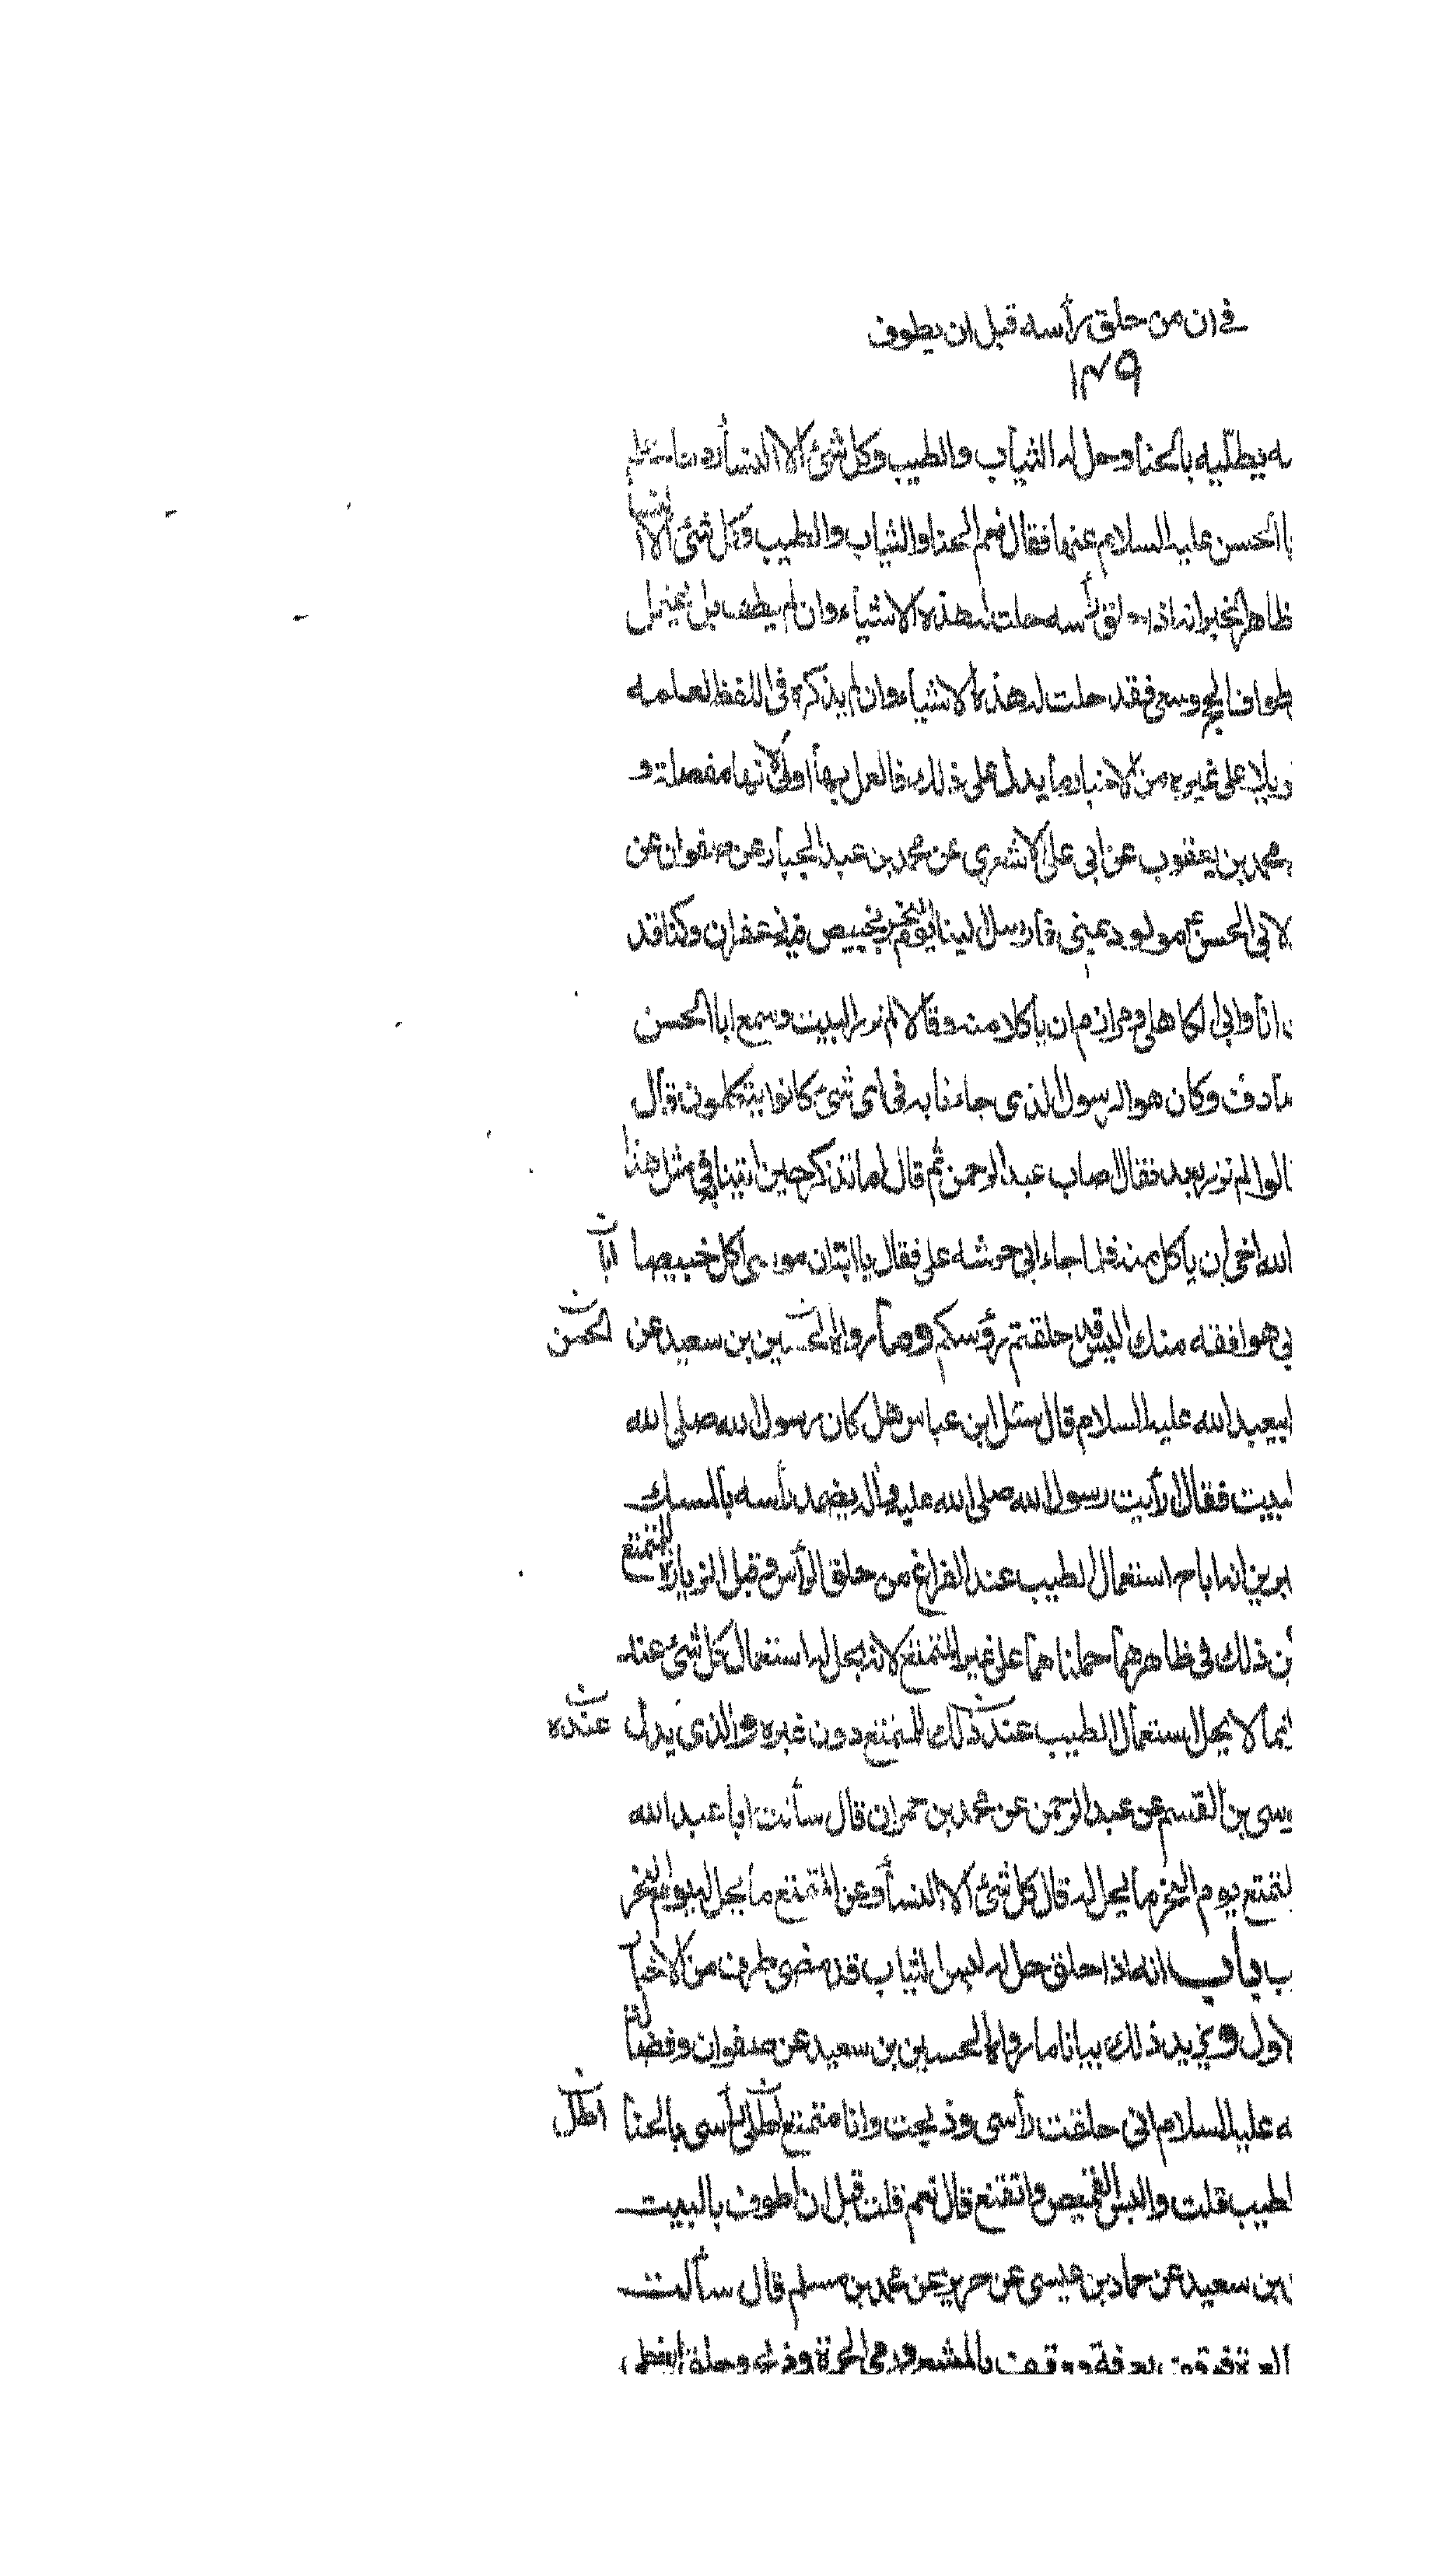 في ان من حلق رأسه قبل ان يطوف
١٣٩
ه يطليه بالحنا وحل له الثياب والطيب وكل شئ الا النساء
ا الحسن عليه السلام عنها فقال نعم الحنا والثياب والطيب وكل شئ الا النسا
ظاهر الخبر انه اذا حلق رأسه حلت له هذه الاشياء وان لم يطف بل يحتمل
طواف الحج وسعى فقد حلت له هذه الاشياء وان لم يذكره في اللفظ لعلمه
ويلا على غيره من الاخبار ما يدل على ذلك فالعمل بها اولى لانها مفصلة و
محمد بن يعقوب عن ابي علي الاشعري عن محمد بن عبد الجبار عن صفوان عن
لابي الحسن ع مولود بمنى فارسل الينا يوم النحر بخبيص فيه زعفران وكنا قد
انا وابى الكاهلي ومرازم ان يأكلا منه وقالا لم نزر البيت وسمع ابا الحسن
صادف وكان هو الرسول الذى جاءنا به في اى شئ كانوا يتكلمون قال
الوا لم نزر بعد فقال اصاب عبد الرحمن ثم قال اما تذكر حين اتينا به في مثل هذا
الله اخى ان يأكل منه فلما جاء ابى حرشه على فقال يا ابتان موسى اكل خبيصها
ابا
بي هو افقه منك اليس قد حلقتم رؤسكم وما رواه الحسين بن سعيد عن
الحسن
ابيعبد الله عليه السلام قال سئل ابن عباس هل كان رسول الله صلى الله
لبيت فقال رأيت رسول الله صلى الله عليه وآله يضمد رأسه بالمسك
برين انه اباح استعمال الطيب عند الفراغ من حلق الرأس وقبل الزيارة للمتمتع
ن ذلك في ظاهرهما حملناهما على غير المتمتع لانه يحل له استعمال كل شئ عند
انما لا يحل استعمال الطيب عند ذلك للمتمتع دون غيره والذى يدل
عنده
وسى بن القسم عن عبد الرحمن عن محمد بن حمران قال سألت ابا عبد الله
لتمتع يوم النحر ما يحل له قال كل شئ الا النساء وعن المتمتع ما يحل له يوم النحر
ب باب انه اذا حلق حل له لبس الثياب قد مضى طرف من الاخبا
لاول ونزيد ذلك بيانا ما رواه الحسين بن سعيد عن صفوان وفضالة
ه عليه السلام انى حلقت رأسى وذبحت وانا متمتع اطلى رأسى بالحنا
اطلى
لطيب قلت والبس القميص واتقنع قال نعم قلت قبل ان اطوف بالبيت
بن سعيد عن حماد بن عيسى عن حريز عن محمد بن مسلم قال سألت
بعرفة ووقف بالمشعر ورمى الجمرة وذبح وحلق